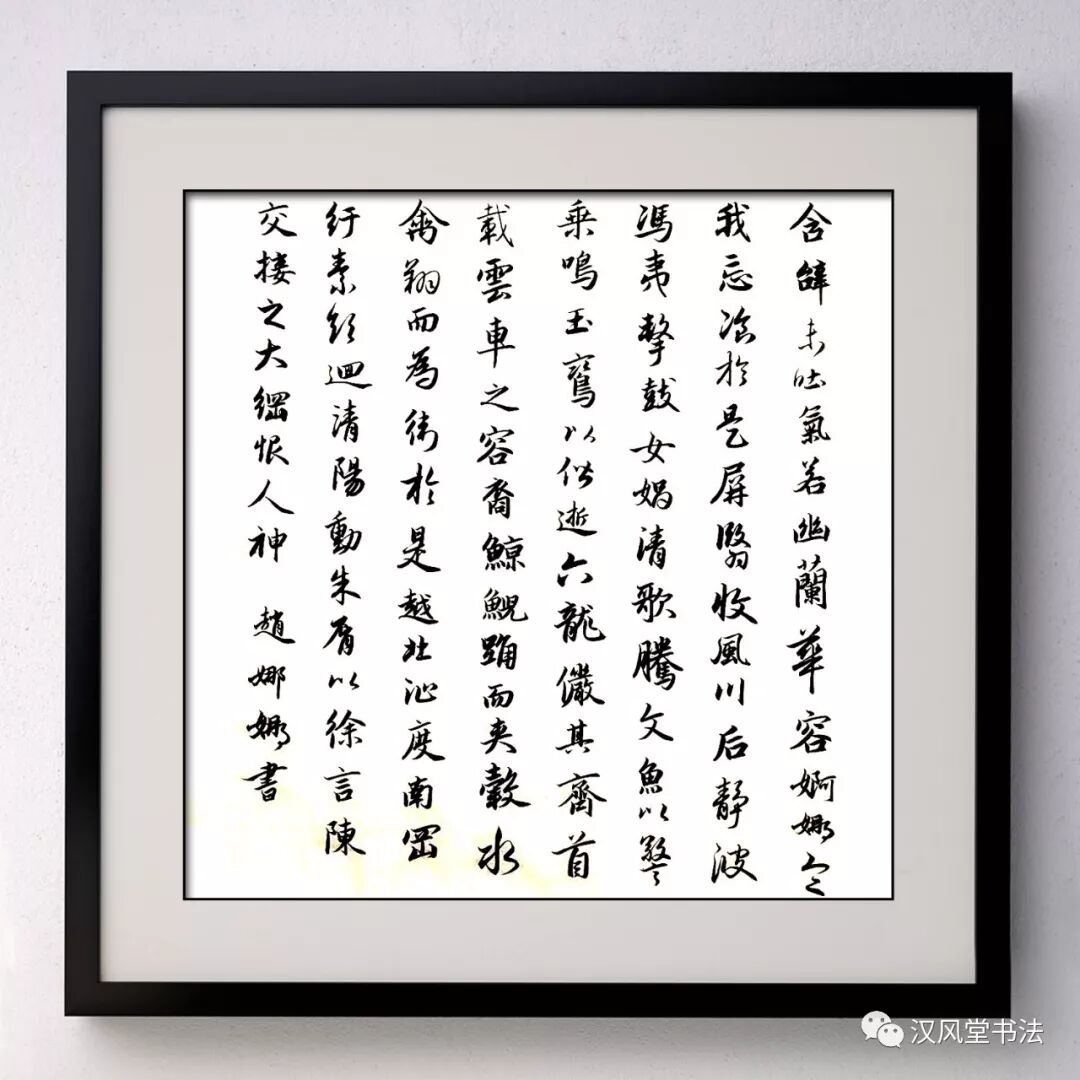 含辭未吐氣若幽蘭華容婀娜令
我忘飡於是屏翳收風川后靜波
馮夷擊鼓女媧清歌騰文魚以警
乘鳴玉鸞以偕逝六龍儼其齊首
載雲車之容裔鯨鯢踊而夾轂水
禽翔而為衛於是越北沚度南岡
紆素領迴清陽動朱脣以徐言陳
交接之大綱恨人神 趙娜娜書
汉风堂书法